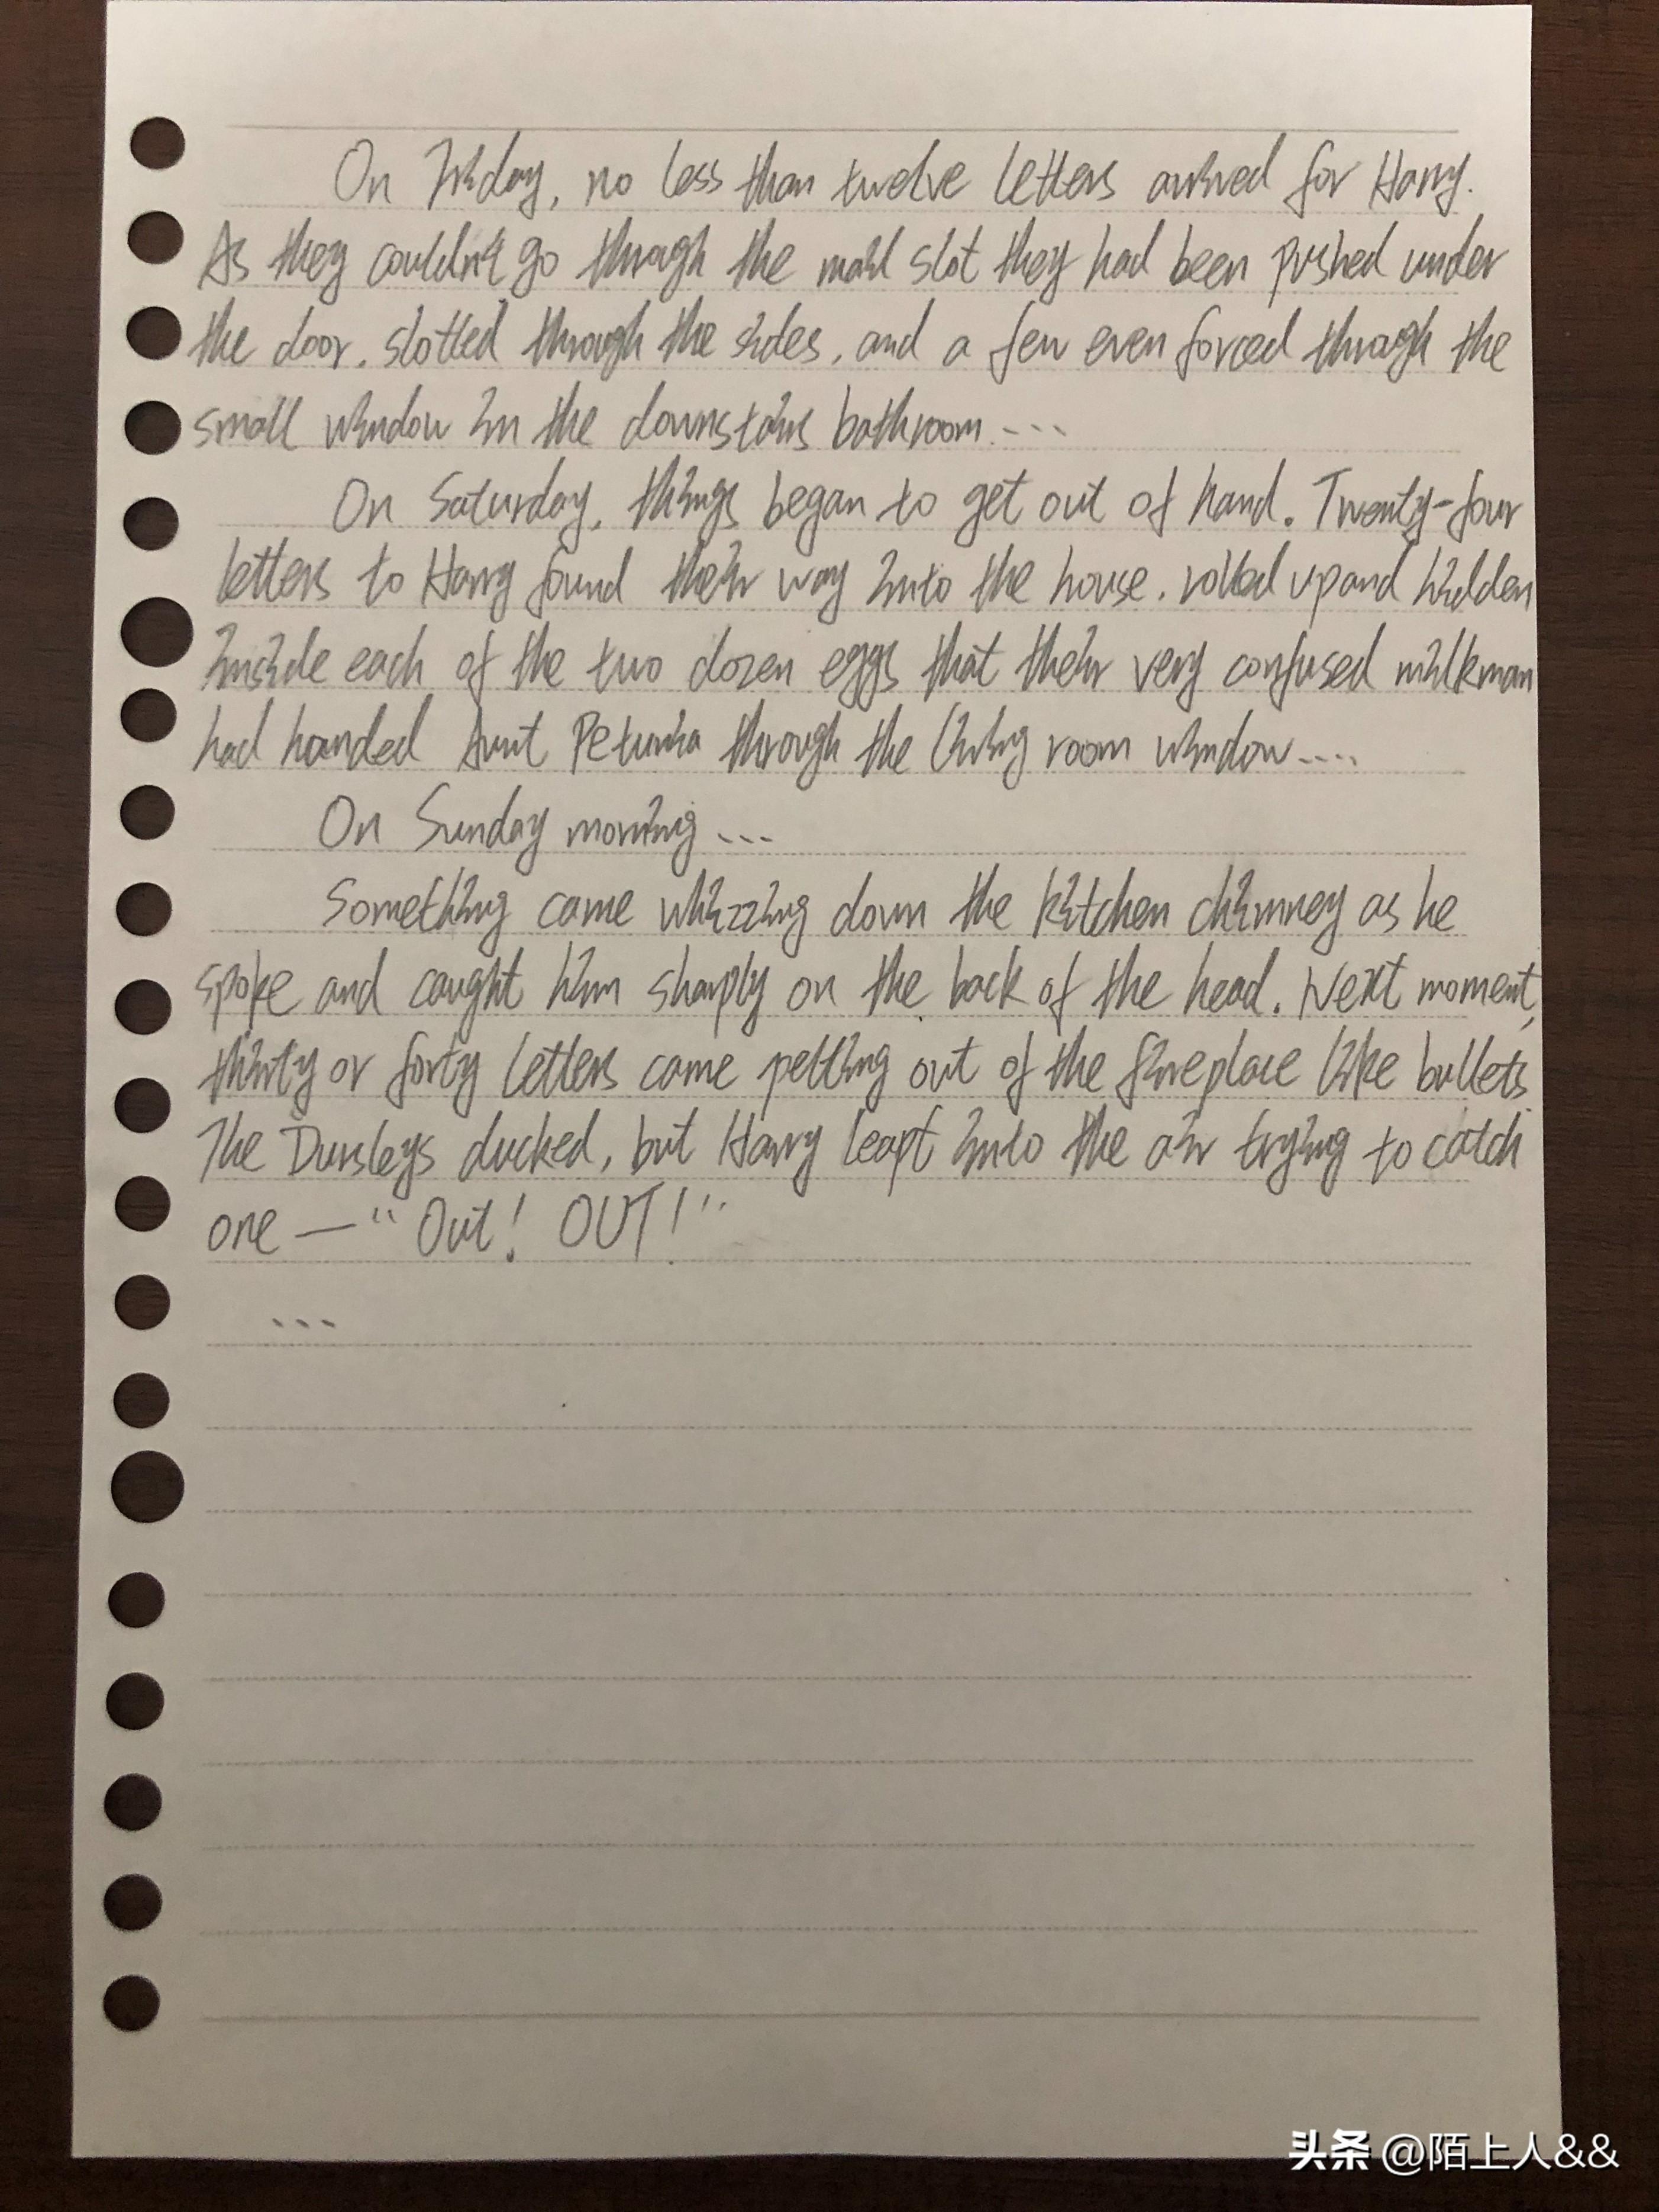 On Friday, no less than twelve letters arrived for Harry.
As they couldn't go through the mail slot they had been pushed under
the door, slotted through the sides, and a few even forced through the
small window in the downstairs bathroom....
On Saturday, things began to get out of hand. Twenty-four
letters to Harry found their way into the house, rolled up and hidden
inside each of the two dozen eggs that their very confused milkman
had handed Aunt Petunia through the living room window....
On Sunday morning...
Something came whizzing down the kitchen chimney as he
spoke and caught him sharply on the back of the head. Next moment,
thirty or forty letters came pelting out of the fireplace like bullets.
The Dursleys ducked, but Harry leapt into the air trying to catch
one — "Out! OUT!"
...
头条 @陌上人&&